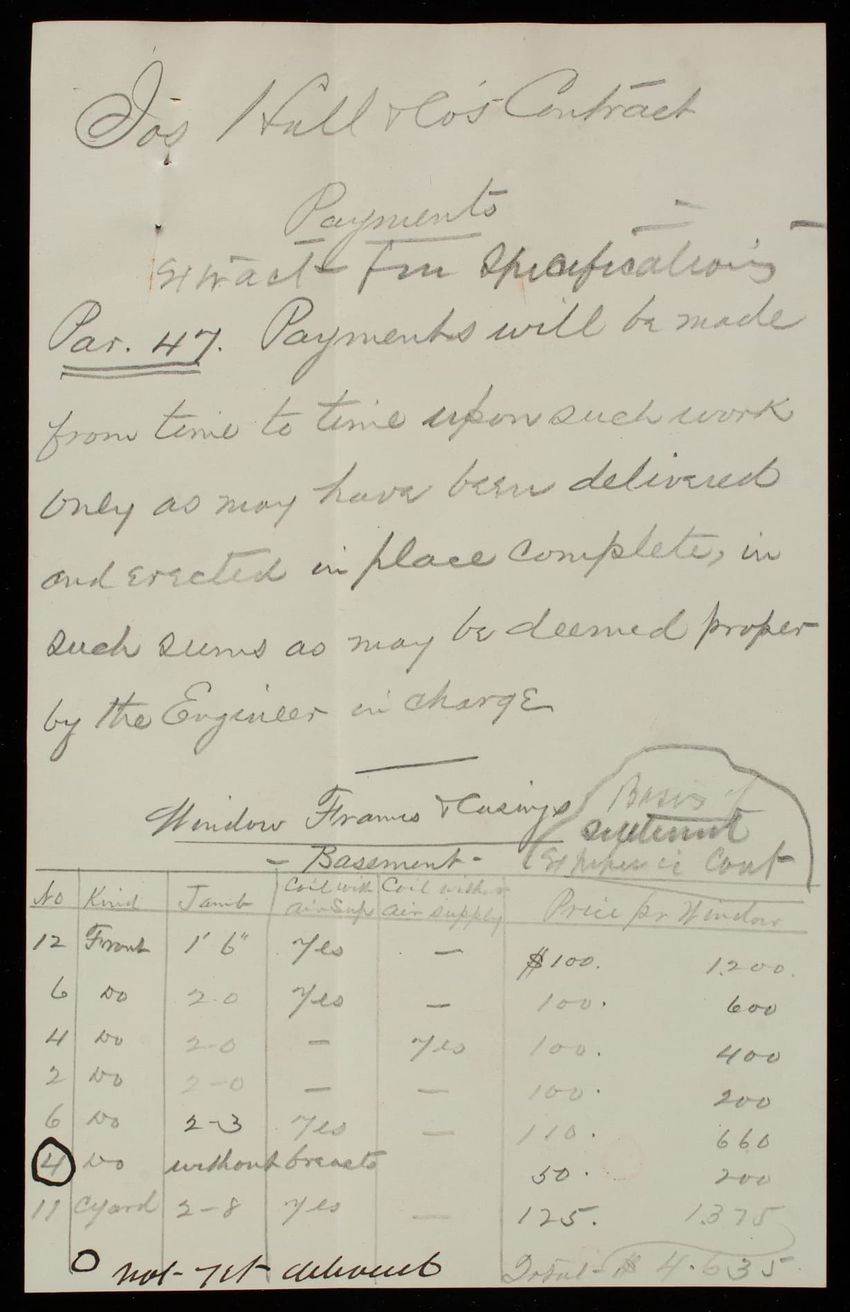 Jos Hull & Co's Contract
Payments
Extract - from Specifications
Par. 47. Payments will be made
from time to time upon such work
only as may have been delivered
and erected in place complete, in
such sums as may be deemed proper
by the Engineer in charge
Window Frames & Casings
Basis of
- Basement -
No Kind Jamb Coil with air Sup Coil without air supply Price pr Window
12 Front 1' 6" Yes — $100. 1.200.
6 Do 2-0 Yes — 100. 600
4 Do 2-0 — Yes 100. 400
2 Do 2-0 — — 100. 200
6 Do 2-3 Yes — 110. 660
4 Do without breasts 50. 200
11 Cyard 2-8 Yes — 125. 1375
O not yet delivered Total - $ 4.635